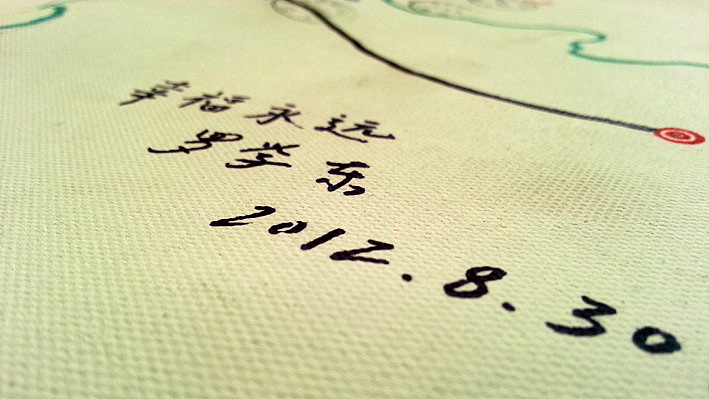 幸福永远
罗学东
2012.8.30